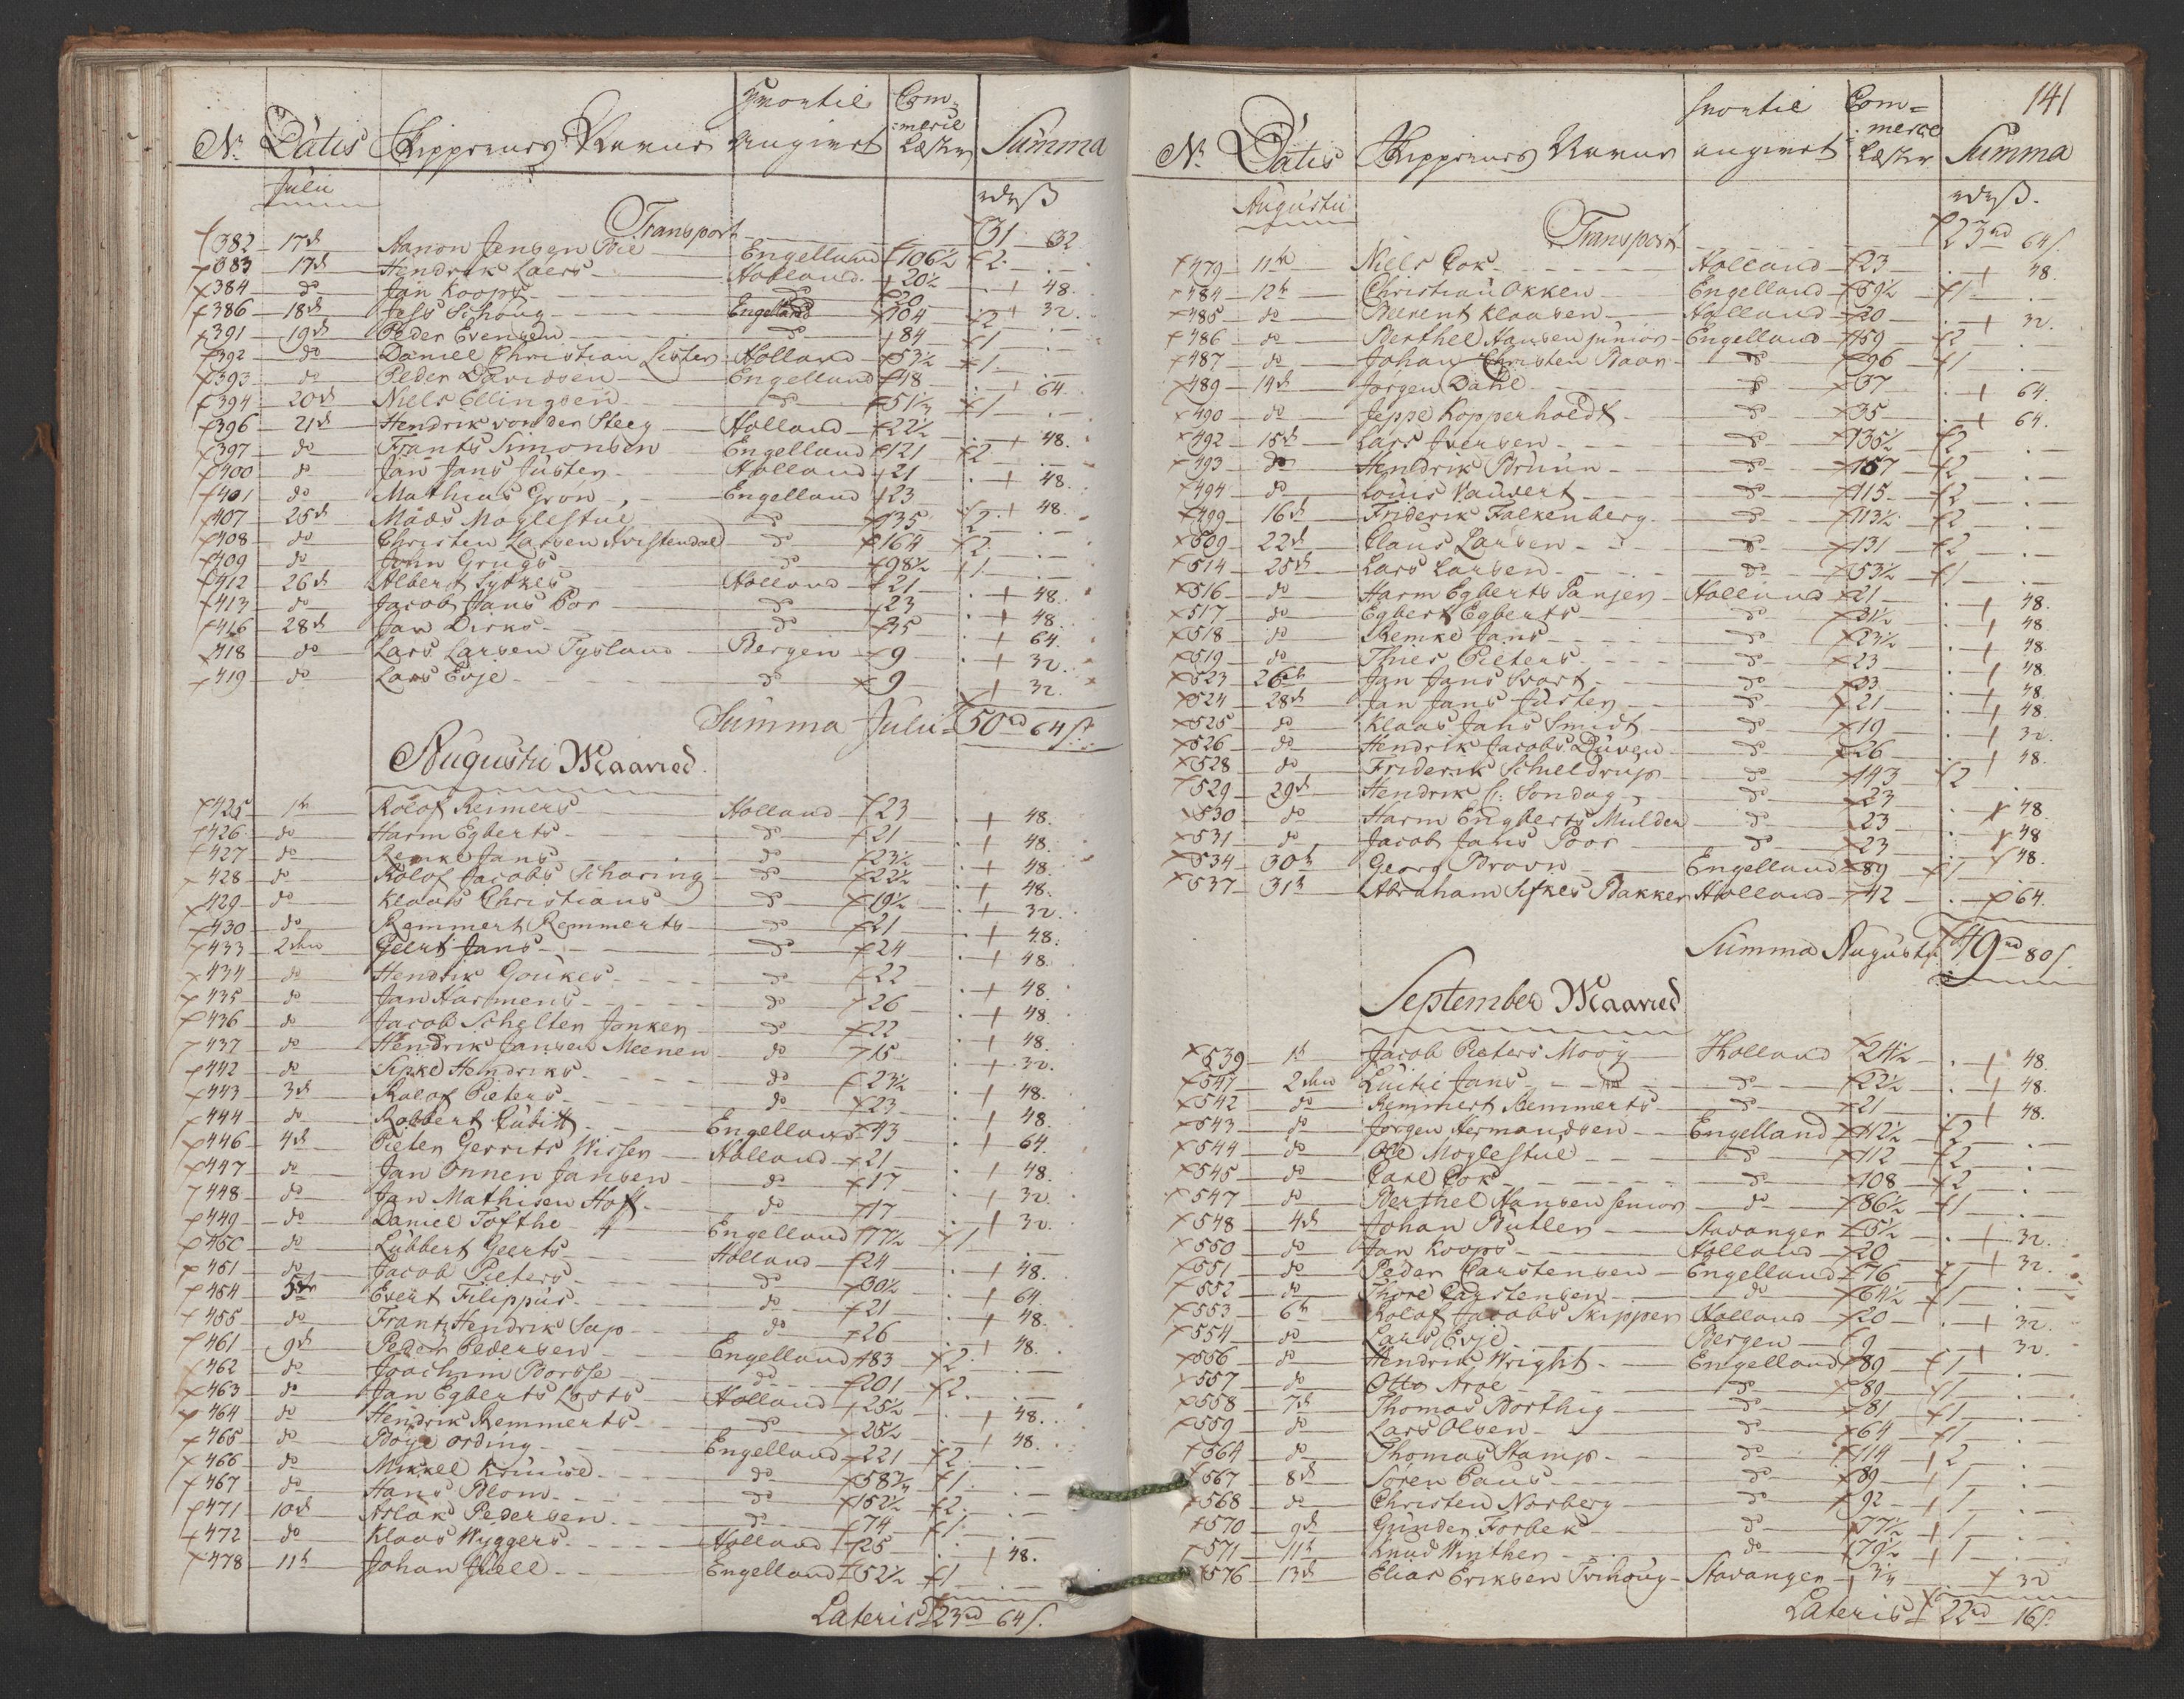 No. Datis Skippernes Navne Hvortil angivet Com=mercie Læster Summa
Julii rd ß
Transport 31 32
382 17de Aanon Jensen Boe Engelland 106½ 2 . -
383 17de Hendrik Laers Holland 20½ . 48.
384 do Jan Koops do 20 . 32.
386 18de Jess Schoug Engelland 104 2 . -
391 19de Peder Evensen do 84 1 . -
392 do Daniel Christian Lister Holland 53½ 1 . -
393 do Peder Davidsen Engelland 48 . 64.
394 20de Niels Ellingsen do 51½ 1 . -
396 21de Hendrik von der Steeg Holland 22½ . 48.
397 do Frants Simonsen Engelland 121 2 . -
400 do Jan Jans Juster Holland 21 . 48.
401 do Mathias Grøn Engelland 23 . 48.
407 25de Mads Moglestue do 135 2 . -
408 do Christen Larsen Avistendal do 164 2 . -
409 do John Grugs do 98½ 1 . -
412 26de Albert Sytkes Holland 21 . 48.
413 do Jacob Jans Bor do 23 . 48.
416 28de Jan Dirks do 35 . 64.
418 do Lars Larsen Tysland Bergen 9 . 32.
419 do Lars Evje do 9 32.
Summa Julii 50 rd 64 ß.
Augustii Maaned.
425 1te Rolof Reimers Holland 23 . 48.
426 do Harm Egberts do 21 . 48.
427 do Remke Jans do 23½ . 48.
428 do Rolof Jacobs Scharing do 22½ . 48.
429 do Klaas Christians do 19½ . 32.
430 do Remmert Remmerts do 21 . 48.
433 2den Geert Jans do 24 . 48.
434 do Hendrik Goukes do 22 . 48.
435 do Jan Harmens do 26 . 48.
436 do Jacob Scholten Jonker do 22 . 48.
437 do Hendrik Jansen Meenen do 15 . 32.
442 do Sipke Hendriks do 23½ . 48.
443 3de Rolof Pieters do 23 . 48.
444 do Robbert Cubitt Engelland 43 . 64.
446 4de Pieter Gerrits Visser Holland 21 . 48.
447 do Jan Onnen Jansen do 17 . 32.
448 do Jan Mathisen Hoff do 17 . 32.
449 do Daniel Tofthe Engelland 77½ 1 . -
450 do Lubbert Geerts Holland 24 . 48.
451 do Jacob Pieters do 30½ . 64.
454 5te Evert Filippus do 21 . 48.
455 do Frantz Hendrik Sap do 26 . 48.
461 9de Peder Pedersen Engelland 183 2 . -
462 do Joachim Borsse do 201 2 . -
463 do Jan Egberts Losts Holland 25½ . 48.
464 do Hendrik Remmerts do 25½ . 48.
465 do Böÿe Ording Engelland 221 2 . -
466 do Mikkel Kruuse do 58¾ 1 . -
467 do Hans Blom do 152½ 2 . -
471 10de Aslak Pedersen do 74 1 . -
472 do Klaas Wyggers Holland 25 . 48.
478 11te Johan Juell Engelland 52½ 1 . -
Lateris 23 rd 64 ß.
141
No. Datis Skippernes Navne hvortil angivet Com=merce Læster Summa
Augustii rd ß.
Transport 23 rd 64 ß.
479 11te Niels Cok Holland 23 . 48.
484 12te Christian Okken Engelland 59½ 1 . -
485 do Beerent Klaasen Holland 20 . 32.
486 do Berthel Hansen junior Engelland 159 2 . -
487 do Johan Christen Baar do 96 1 . -
489 14de Jørgen Dahl do 37 . 64.
490 do Jeppe Kopperholdt do 35 . 64.
492 15de Lars Iversen do 136½ 2 . -
493 do Hendrik Bruun do 157 2 . -
494 do Louis Vauvert do 115 2 . -
499 16de Friderik Falkenberg do 113½ 2 . -
509 22de Claus Larsen do 131 2 . -
514 25de Lars Larsen do 53½ 1 . -
516 do Harm Egberts Panjer Holland 21 . 48.
517 do Egbert Egberts do 21½ . 48.
518 do Remke Jans do 23½ . 48.
519 do Thies Pieters do 23 . 48.
523 26de Jan Jans Svart do 23 . 48.
524 28de Jan Jans Juster do 21 . 48.
525 do Klaas Jans Smidt do 19 . 32.
526 do Hendrik Jacobs Duven do 26 . 48.
528 do Friderik Schieldrup do 143 2 .
529 29de Hendrik C: Sondag do 23 . 48.
530 do Harm Engberts Mulder do 23 . 48
531 do Jacob Jans Poor do 23 . 48.
534 30te Georg Brovn Engelland 89 1 . -
537 31te Abraham Sifkes Bakker Holland 42 . 64.
Summa Augusti 49 rd 80 ß.
September Maaned
539 1te Jacob Pieters Mooÿ Holland 24½ . 48.
541 2den Luitie Jans do 22½ . 48.
542 do Remmert Remmerts do 21 . 48.
543 do Jørgen Hermandsen Engelland 112½ 2 . -
544 do Ole Moglestue do 112 2 . -
545 do Carl Cok do 108 2 . -
547 do Berthel Hansen senior do 86½ 1 . -
548 4de Johan Butler Stavanger 5½ . 32.
550 do Jan Koops Holland 20 . 32.
551 do Peder Carstensen Engelland 76 1 . -
552 do Thore Carstensen do 64½ 1 . -
553 6te Rolof Jacobs Skipper Holland 20 . 32.
554 do Lars Evje Bergen 9 . 32.
556 do Hendrik Wright Engelland 89 1 . -
557 do Otto Aroe do 89 1 . -
558 7de Thomas Borthig do 81 1 . -
559 do Lars Olsen do 64 1 . -
564 do Thomas Stamp do 114 2 . -
567 8de Søren Paus do 89 1 . -
568 do Christen Norberg do 92 1 . -
570 9de Gunder Forbek do 77½ 1 . -
571 11te Knud Winther do 79½ 1 . -
576 13de Elias Eriksen Tvihoug Stavanger 3¼ 32
Lateris 22 rd 16 ß.